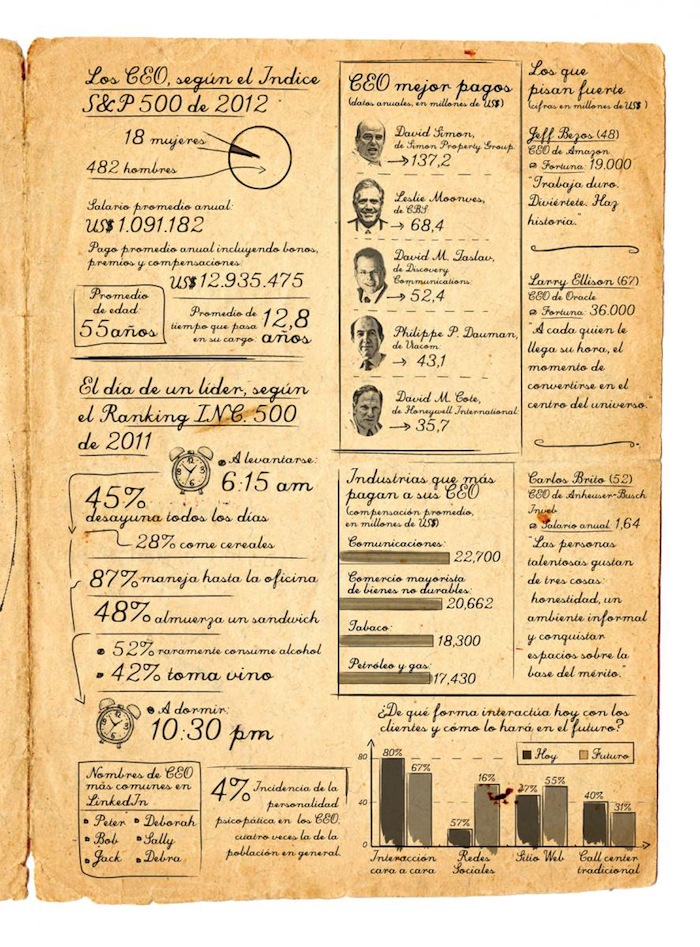 Los CEO, según el Indice
S&P 500 de 2012
18 mujeres
482 hombres
Salario promedio anual:
US$ 1.091.182
Pago promedio anual incluyendo bonos,
premios y compensaciones:
US$ 12.935.475
Promedio
de edad:
55 años
Promedio de
tiempo que pasa
en su cargo:
12,8
años
El día de un líder, según
el Ranking INC. 500
de 2011
A levantarse:
6:15 am
45%
desayuna todos los días
28% come cereales
87% maneja hasta la oficina
48% almuerza un sandwich
52% raramente consume alcohol
42% toma vino
A dormir:
10:30 pm
Nombres de CEO
más comunes en
LinkedIn
Peter
Deborah
Bob
Sally
Jack
Debra
4% Incidencia de la
personalidad
psicopática en los CEO,
cuatro veces la de la
población en general.
CEO mejor pagos
(datos anuales, en millones de US$)
David Simon,
de Simon Property Group.
137,2
Leslie Moonves,
de CBS
68,4
David M. Taslav,
de Discovery
Communications:
52,4
Philippe P. Dauman,
de Viacom:
43,1
David M. Cote,
de Honeywell International:
35,7
Industrias que más
pagan a sus CEO
(compensación promedio,
en millones de US$)
Comunicaciones:
22,700
Comercio mayorista
de bienes no durables:
20,662
Tabaco:
18,300
Petróleo y gas:
17,430
Los que
pisan fuerte
(cifras en millones de US$)
Jeff Bezos (48)
CEO de Amazon
Fortuna: 19.000
"Trabaja duro.
Diviértete. Haz
historia."
Larry Ellison (67)
CEO de Oracle
Fortuna: 36.000
"A cada quien le
llega su hora, el
momento de
convertirse en el
centro del universo."
Carlos Brito (52)
CEO de Anheuser-Busch
Inveb
Salario anual: 1,64
"Las personas
talentosas gustan
de tres cosas:
honestidad, un
ambiente informal
y conquistar
espacios sobre la
base del mérito."
¿De qué forma interactúa hoy con los
clientes y cómo lo hará en el futuro?
Hoy
Futuro
80
40
0
80%
67%
57%
16%
47%
55%
40%
31%
Interacción
cara a cara
Redes
Sociales
Sitio Web
Call center
tradicional